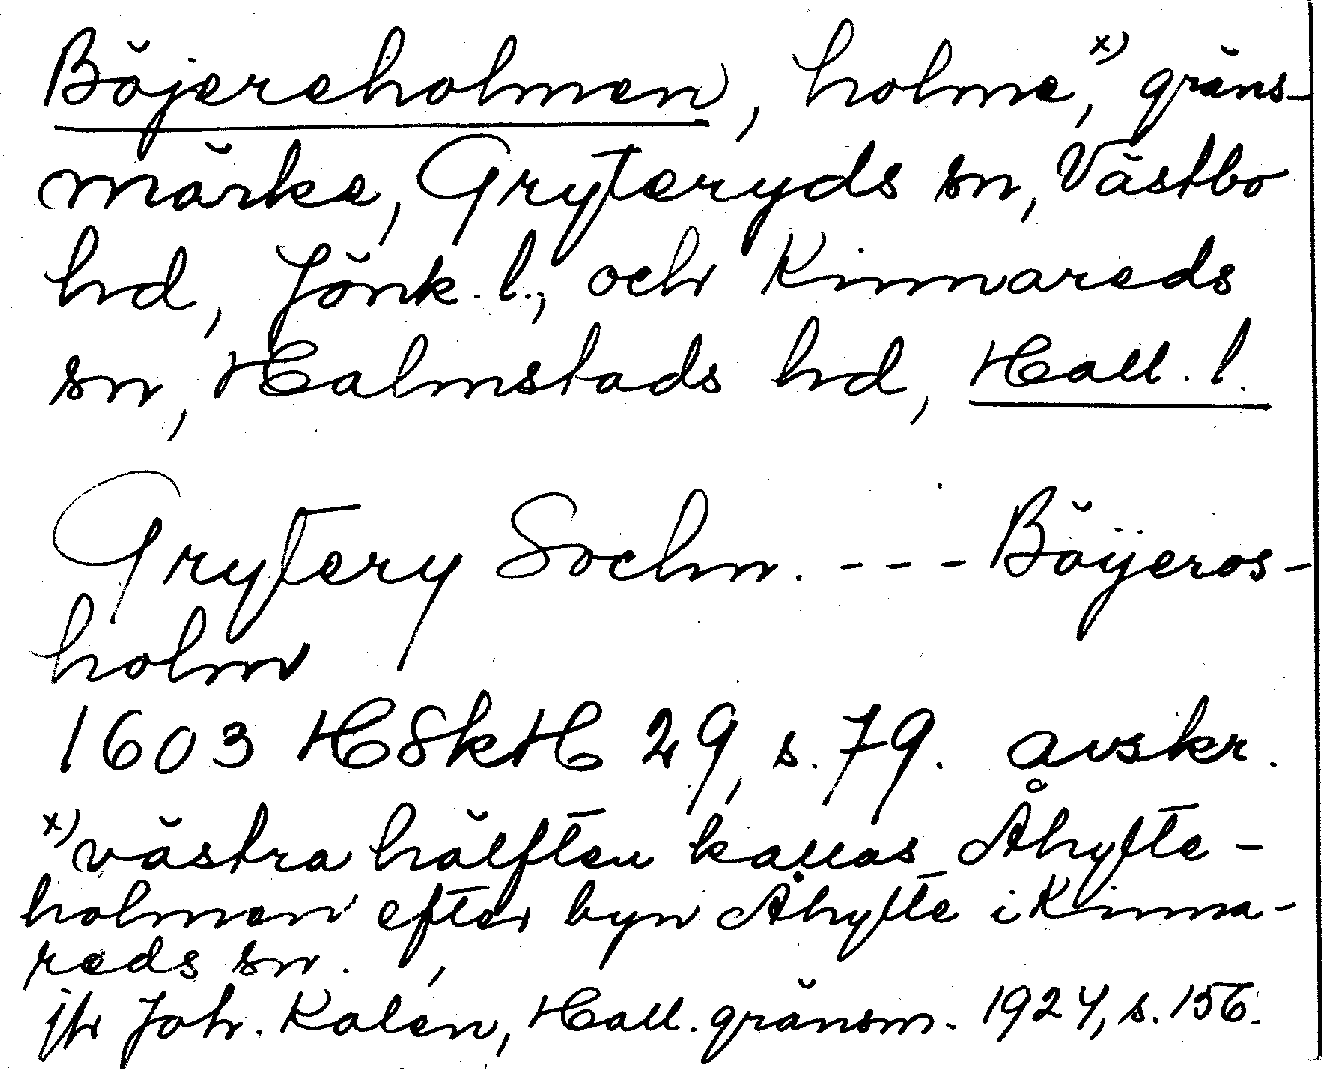 Böjereholmen, holme,x) gräns-
märke, Gryteryds sn, Västbo
hd, Jönk. l., och Kinnareds
sn, Halmstads hd, Hall. l.
Grytery Sochn. --- Böÿeros-
holm
1603 HSkH 29, s. 79. avskr.
x) västra hälften kallas Åhylte-
holmen efter byn Åhylte i Kinna-
reds sn.
jfr Joh. Kalén, Hall. gränsm. 1924, s. 156.